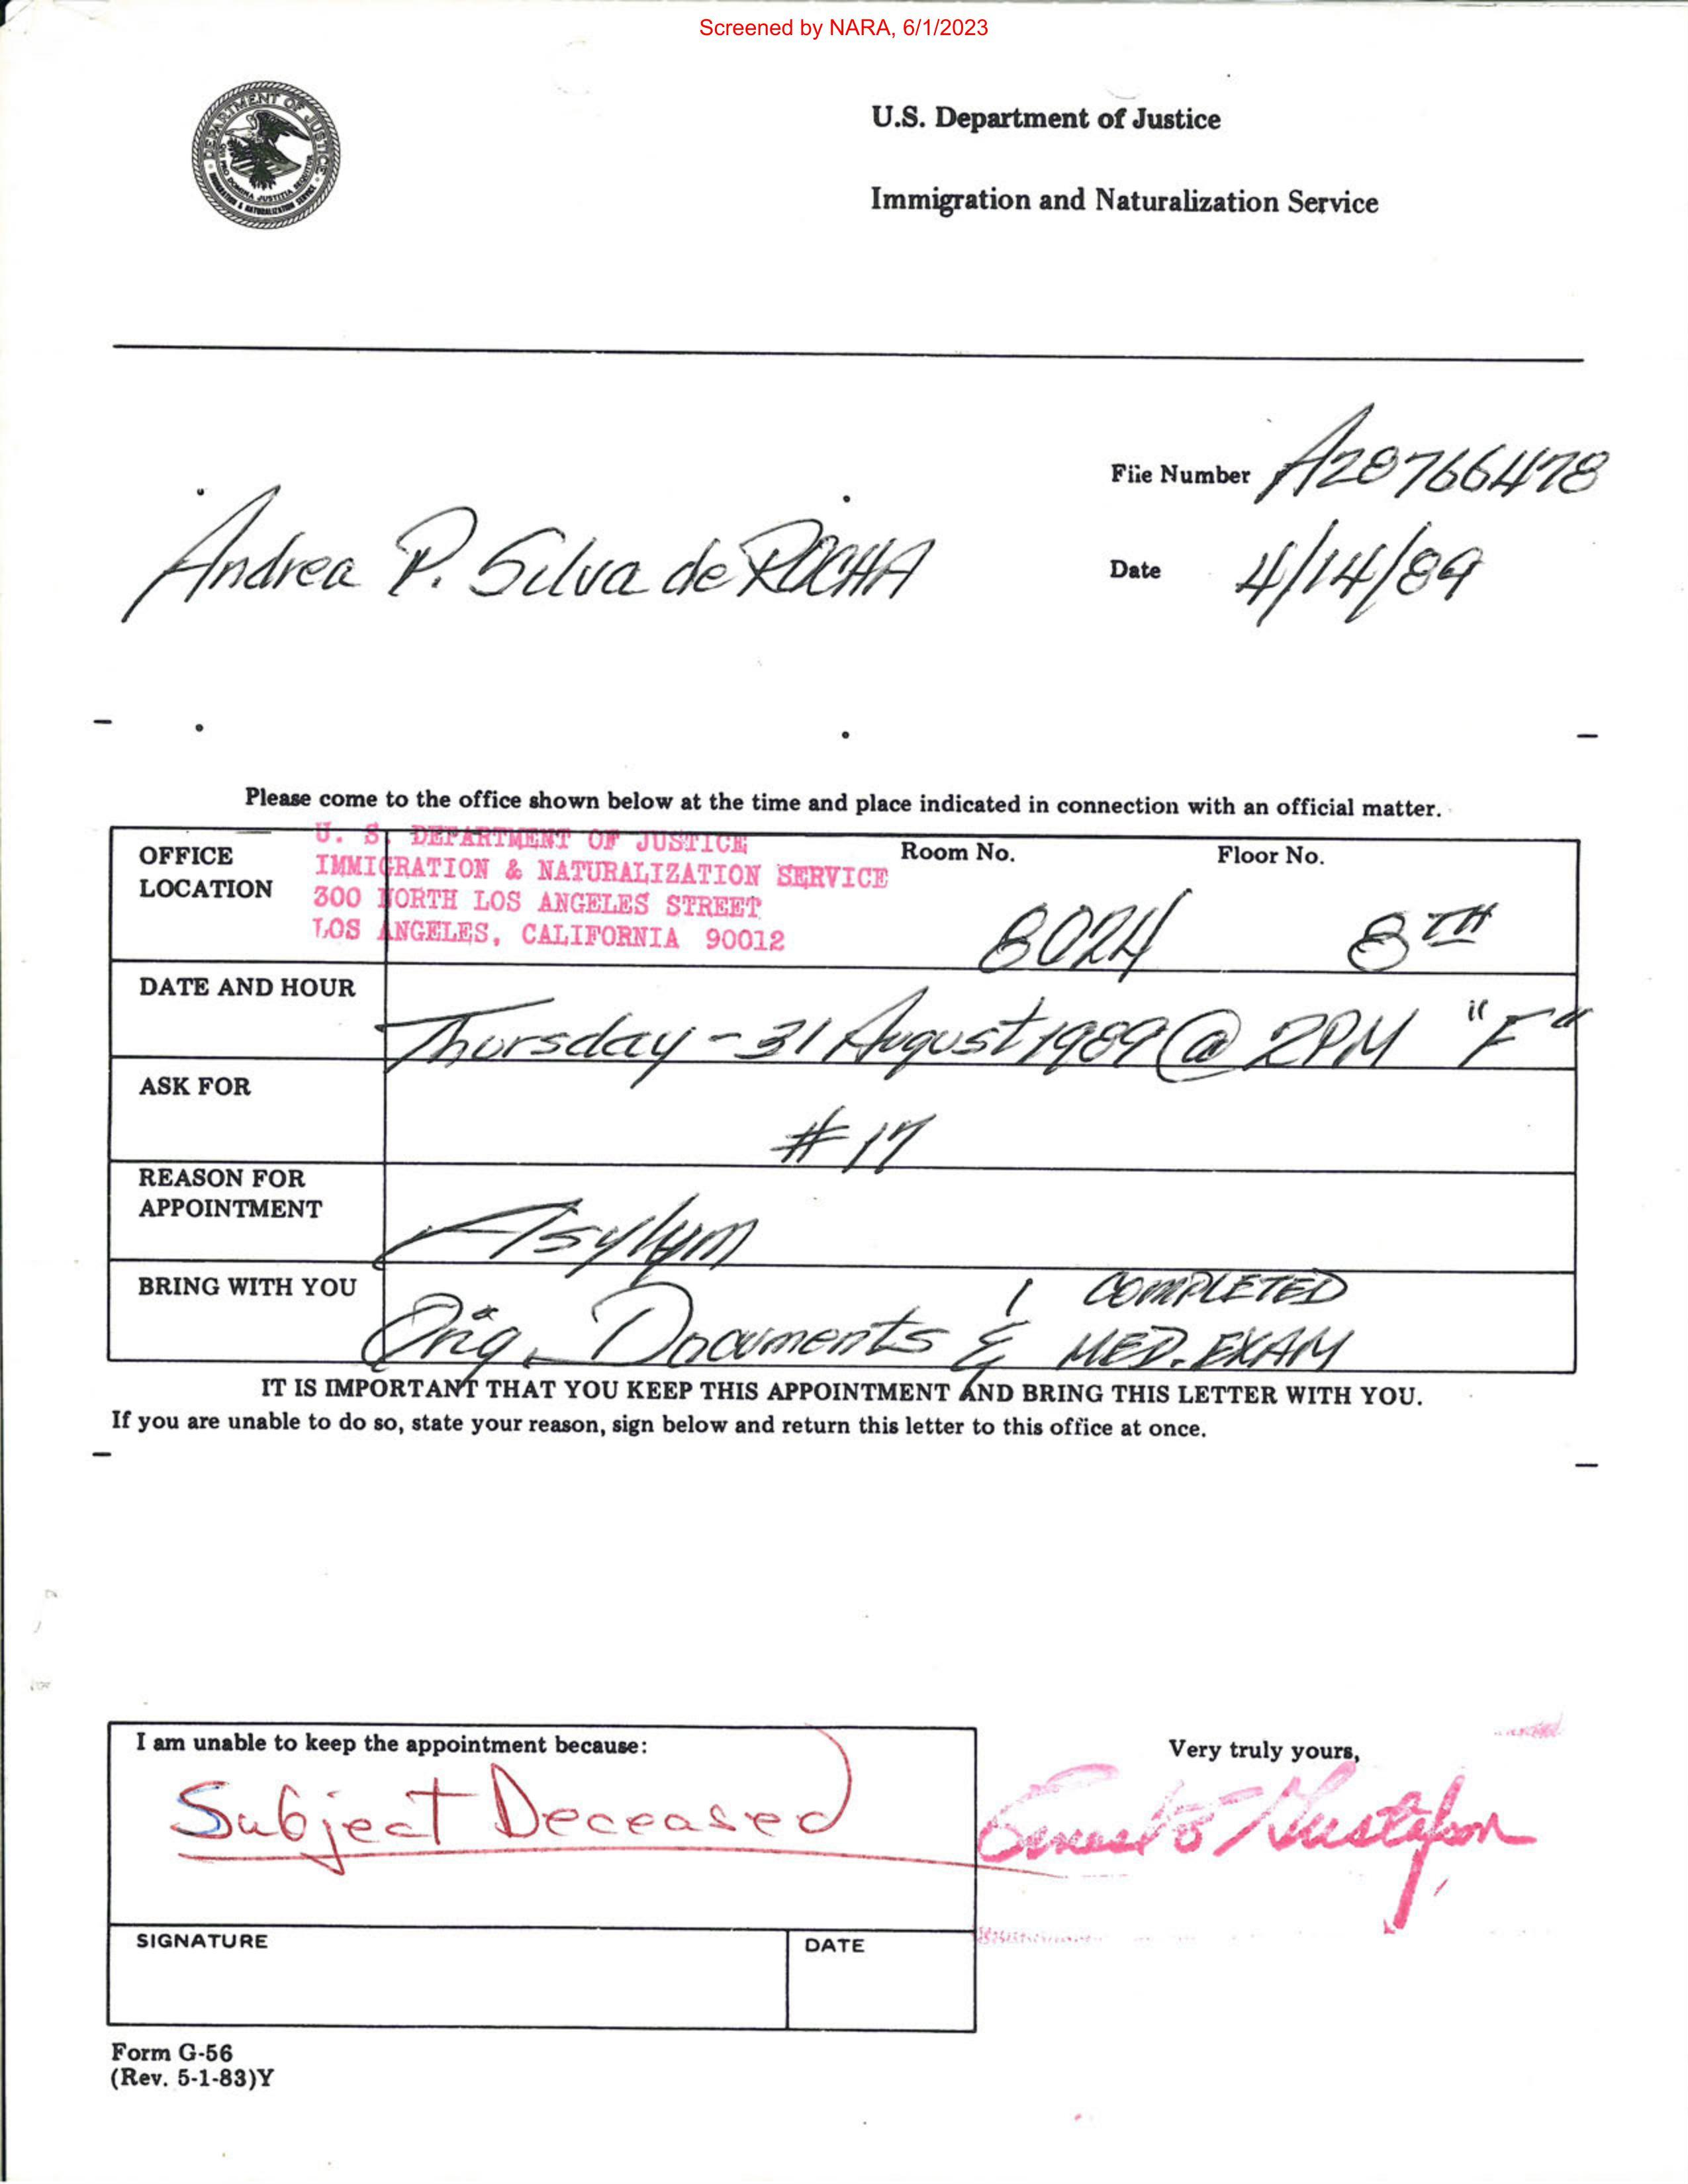 Screened by NARA, 6/1/2023
DEPARTMENT OF JUSTICE
QUI PRO DOMINA JUSTITIA SEQUITUR
IMMIGRATION & NATURALIZATION SERVICE
U.S. Department of Justice
Immigration and Naturalization Service
File Number A28766478
Andrea P. Silva de ROCHA
Date 4/14/89
Please come to the office shown below at the time and place indicated in connection with an official matter.
OFFICE LOCATION
U. S. DEPARTMENT OF JUSTICE
IMMIGRATION & NATURALIZATION SERVICE
300 NORTH LOS ANGELES STREET
LOS ANGELES, CALIFORNIA 90012
Room No. 8024
Floor No. 8TH
DATE AND HOUR
Thursday - 31 August 1989 @ 2PM "F"
ASK FOR
# 17
REASON FOR APPOINTMENT
Asylum
BRING WITH YOU
Orig. Documents & COMPLETED MED. EXAM
IT IS IMPORTANT THAT YOU KEEP THIS APPOINTMENT AND BRING THIS LETTER WITH YOU.
If you are unable to do so, state your reason, sign below and return this letter to this office at once.
I am unable to keep the appointment because:
Subject Deceased
Very truly yours,
Ernest E Gustafson
SIGNATURE
DATE
Form G-56
(Rev. 5-1-83)Y